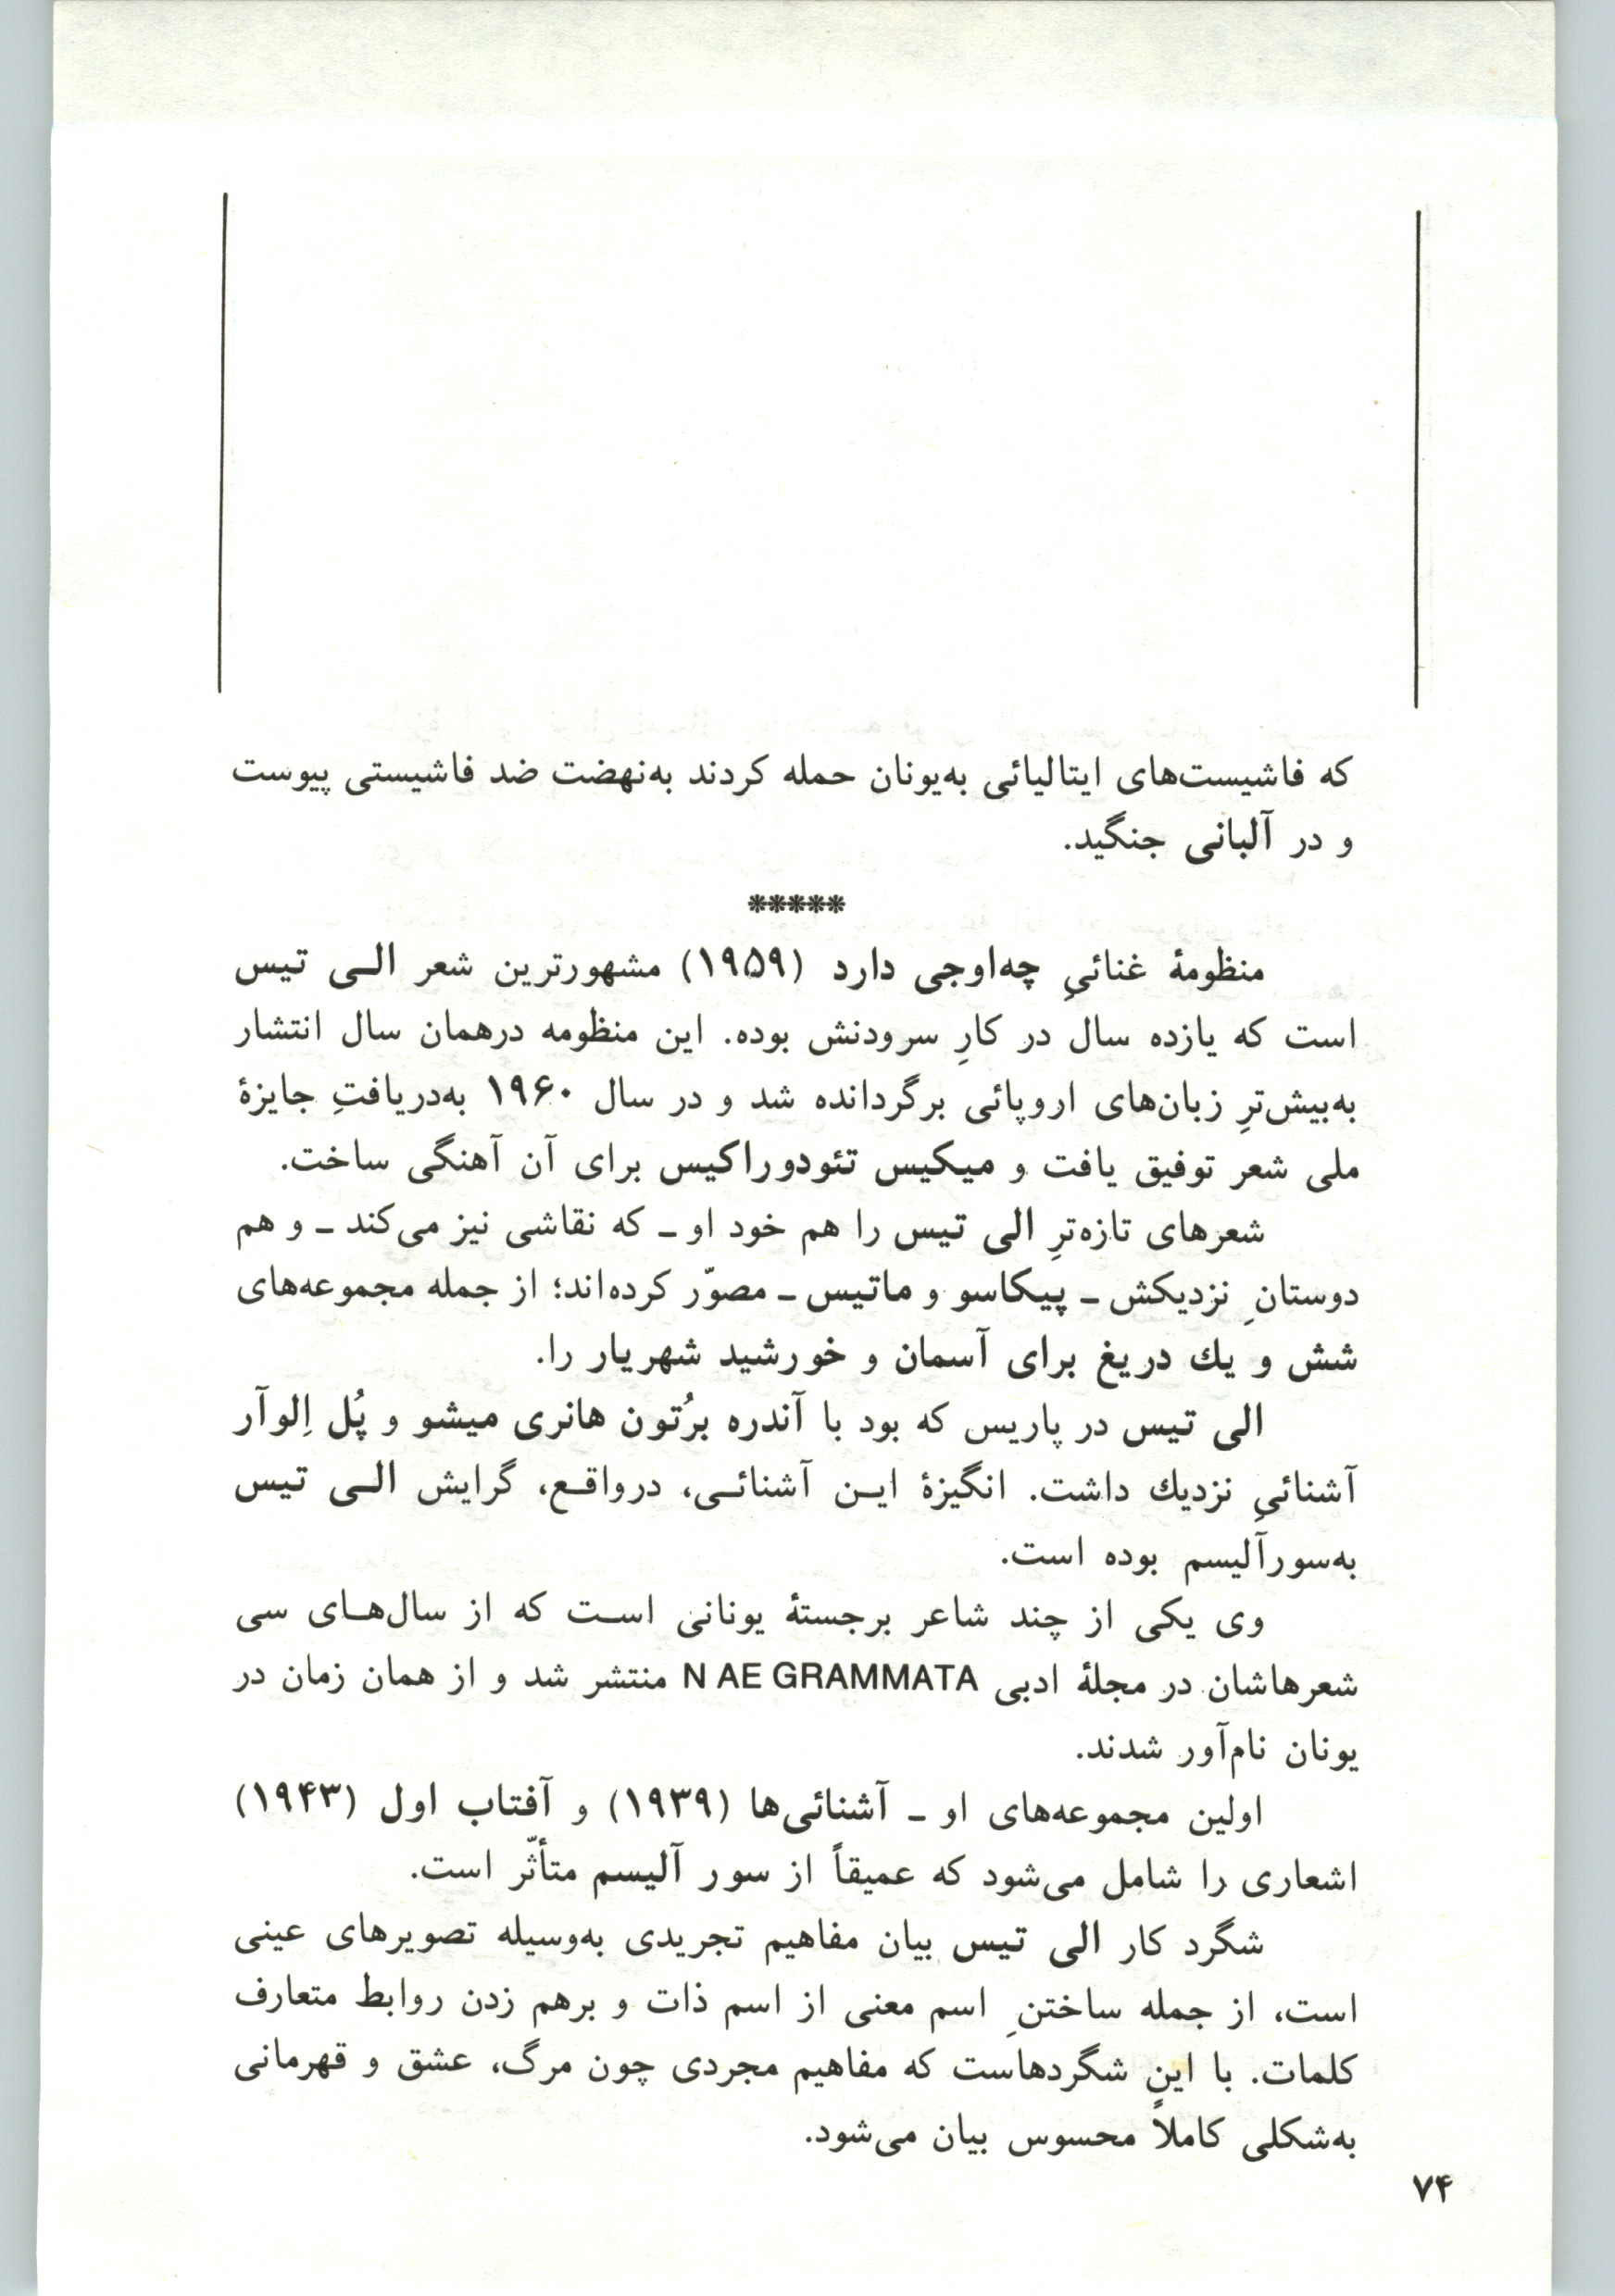 که فاشیست‌های ایتالیائی به‌یونان حمله کردند به‌نهضت ضد فاشیستی پیوست
و در آلبانی جنگید.
*****
منظومهٔ غنائیِ چه‌اوجی دارد (۱۹۵۹) مشهورترین شعر الـی تیس
است که یازده سال در کارِ سرودنش بوده. این منظومه درهمان سال انتشار
به‌بیش‌ترِ زبان‌های اروپائی برگردانده شد و در سال ۱۹۶۰ به‌دریافتِ جایزهٔ
ملی شعر توفیق یافت و میکیس تئودوراکیس برای آن آهنگی ساخت.
شعرهای تازه‌ترِ الی تیس را هم خود او ـ که نقاشی نیز می‌کند ـ و هم
دوستانِ نزدیکش ـ پیکاسو و ماتیس ـ مصوّر کرده‌اند؛ از جمله مجموعه‌های
شش و یك دریغ برای آسمان و خورشید شهریار را.
الی تیس در پاریس که بود با آندره برُتون هانری میشو و پُل اِلوآر
آشنائیِ نزدیك داشت. انگیزهٔ ایـن آشنائـی، درواقـع، گرایش الـی تیس
به‌سورآلیسم بوده است.
وی یکی از چند شاعر برجستهٔ یونانی اسـت که از سال‌هـای سی
شعرهاشان در مجلهٔ ادبی N AE GRAMMATA منتشر شد و از همان زمان در
یونان نام‌آور شدند.
اولین مجموعه‌های او ـ آشنائی‌ها (۱۹۳۹) و آفتاب اول (۱۹۴۳)
اشعاری را شامل می‌شود که عمیقاً از سور آلیسم متأثّر است.
شگرد کار الی تیس بیان مفاهیم تجریدی به‌وسیله تصویرهای عینی
است، از جمله ساختنِ اسم معنی از اسم ذات و برهم زدن روابط متعارف
کلمات. با این شگردهاست که مفاهیم مجردی چون مرگ، عشق و قهرمانی
به‌شکلی کاملاً محسوس بیان می‌شود.
۷۴